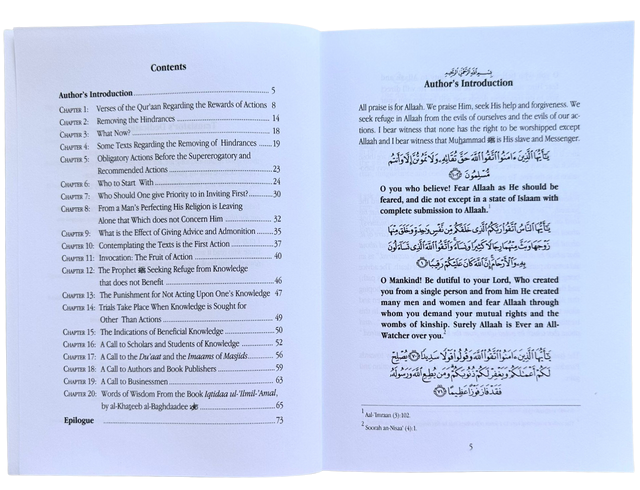 Contents
Author's Introduction 5
CHAPTER 1: Verses of the Qur'aan Regarding the Rewards of Actions 8
CHAPTER 2: Removing the Hindrances 14
CHAPTER 3: What Now? 18
CHAPTER 4: Some Texts Regarding the Removing of Hindrances 19
CHAPTER 5: Obligatory Actions Before the Supererogatory and
Recommended Actions 23
CHAPTER 6: Who to Start With 24
CHAPTER 7: Who Should One give Priority to in Inviting First? 30
CHAPTER 8: From a Man's Perfecting His Religion is Leaving
Alone that Which does not Concern Him 32
CHAPTER 9: What is the Effect of Giving Advice and Admonition 35
CHAPTER 10: Contemplating the Texts is the First Action 37
CHAPTER 11: Invocation: The Fruit of Action 40
CHAPTER 12: The Prophet ﷺ Seeking Refuge from Knowledge
that does not Benefit 46
CHAPTER 13: The Punishment for Not Acting Upon One's Knowledge 47
CHAPTER 14: Trials Take Place When Knowledge is Sought for
Other Than Actions 49
CHAPTER 15: The Indications of Beneficial Knowledge 50
CHAPTER 16: A Call to Scholars and Students of Knowledge 52
CHAPTER 17: A Call to the Du'aat and the Imaams of Masjids 56
CHAPTER 18: A Call to Authors and Book Publishers 59
CHAPTER 19: A Call to Businessmen 63
CHAPTER 20: Words of Wisdom From the Book Iqtidaa ul-'Ilmil-'Amal,
by al-Khateeb al-Baghdaadee 65
Epilogue 73
بسم الله الرحمن الرحيم
Author's Introduction
All praise is for Allaah. We praise Him, seek His help and forgiveness. We
seek refuge in Allaah from the evils of ourselves and the evils of our ac-
tions. I bear witness that none has the right to be worshipped except
Allaah and I bear witness that Muḥammad ﷺ is His slave and Messenger.
يَٰٓأَيُّهَا ٱلَّذِينَ ءَامَنُوا۟ ٱتَّقُوا۟ ٱللَّهَ حَقَّ تُقَاتِهِۦ وَلَا تَمُوتُنَّ إِلَّا وَأَنتُم
مُّسْلِمُونَ ﴿١٠٢﴾
O you who believe! Fear Allaah as He should be
feared, and die not except in a state of Islaam with
complete submission to Allaah.1
يَٰٓأَيُّهَا ٱلنَّاسُ ٱتَّقُوا۟ رَبَّكُمُ ٱلَّذِى خَلَقَكُم مِّن نَّفْسٍ وَٰحِدَةٍ وَخَلَقَ مِنْهَا
زَوْجَهَا وَبَثَّ مِنْهُمَا رِجَالًا كَثِيرًا وَنِسَآءً وَٱتَّقُوا۟ ٱللَّهَ ٱلَّذِى تَسَآءَلُونَ
بِهِۦ وَٱلْأَرْحَامَ إِنَّ ٱللَّهَ كَانَ عَلَيْكُمْ رَقِيبًا ﴿١﴾
O Mankind! Be dutiful to your Lord, Who created
you from a single person and from him He created
many men and women and fear Allaah through
whom you demand your mutual rights and the
wombs of kinship. Surely Allaah is Ever an All-
Watcher over you.2
يَٰٓأَيُّهَا ٱلَّذِينَ ءَامَنُوا۟ ٱتَّقُوا۟ ٱللَّهَ وَقُولُوا۟ قَوْلًا سَدِيدًا ﴿٧٠﴾ يُصْلِحْ
لَكُمْ أَعْمَٰلَكُمْ وَيَغْفِرْ لَكُمْ ذُنُوبَكُمْ وَمَن يُطِعِ ٱللَّهَ وَرَسُولَهُۥ
فَقَدْ فَازَ فَوْزًا عَظِيمًا ﴿٧١﴾
1 Aal-'Imraan (3):102.
2 Soorah an-Nisaa' (4):1.
5